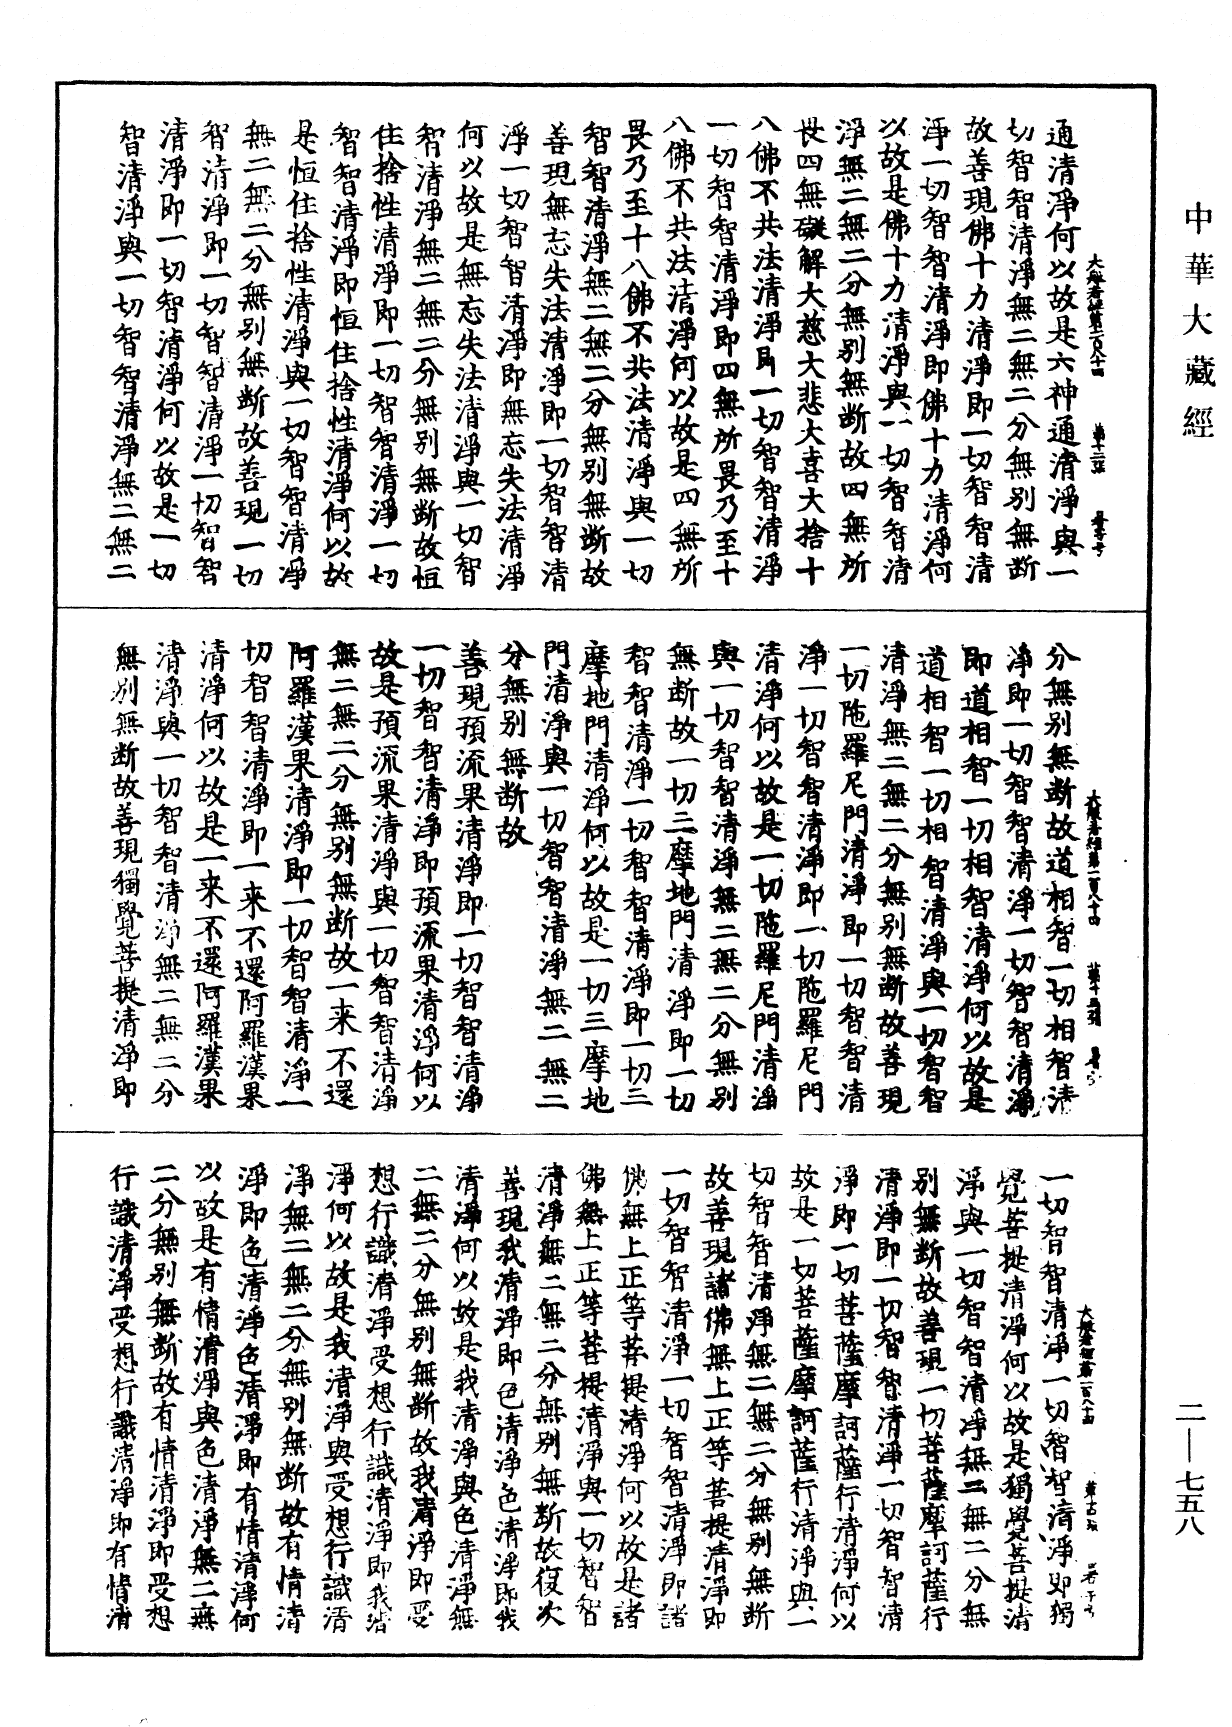 中華大藏經
通清淨何以故是六神通清淨與一
切智智清淨無二無二分無別無斷
故善現佛十力清淨即一切智智清
淨一切智智清淨即佛十力清淨何
以故是佛十力清淨與一切智智清
淨無二無二分無別無斷故四無所
畏四無礙解大慈大悲大喜大捨十
八佛不共法清淨即一切智智清淨
一切智智清淨即四無所畏乃至十
八佛不共法清淨何以故是四無所
畏乃至十八佛不共法清淨與一切
智智清淨無二無二分無別無斷故
善現無忘失法清淨即一切智智清
淨一切智智清淨即無忘失法清淨
何以故是無忘失法清淨與一切智
智清淨無二無二分無別無斷故恒
住捨性清淨即一切智智清淨一切
智智清淨即恒住捨性清淨何以故
是恒住捨性清淨與一切智智清淨
無二無二分無別無斷故善現一切
智清淨即一切智智清淨一切智智
清淨即一切智清淨何以故是一切
智清淨與一切智智清淨無二無二
大般若經第一百八十四
分無別無斷故道相智一切相智清
淨即一切智智清淨一切智智清淨
即道相智一切相智清淨何以故是
道相智一切相智清淨與一切智智
清淨無二無二分無別無斷故善現
一切陁羅尼門清淨即一切智智清
淨一切智智清淨即一切陁羅尼門
清淨何以故是一切陁羅尼門清淨
與一切智智清淨無二無二分無別
無斷故一切三摩地門清淨即一切
智智清淨一切智智清淨即一切三
摩地門清淨何以故是一切三摩地
門清淨與一切智智清淨無二無二
分無別無斷故
善現預流果清淨即一切智智清淨
一切智智清淨即預流果清淨何以
故是預流果清淨與一切智智清淨
無二無二分無別無斷故一来不還
阿羅漢果清淨即一切智智清淨一
切智智清淨即一来不還阿羅漢果
清淨何以故是一来不還阿羅漢果
清淨與一切智智清淨無二無二分
無別無斷故善現獨覺菩提清淨即
大般若經第一百八十四
一切智智清淨一切智智清淨即獨
覺菩提清淨何以故是獨覺菩提清
淨與一切智智清淨無二無二分無
別無斷故善現一切菩薩摩訶薩行
清淨即一切智智清淨一切智智清
淨即一切菩薩摩訶薩行清淨何以
故是一切菩薩摩訶薩行清淨與一
切智智清淨無二無二分無別無斷
故善現諸佛無上正等菩提清淨即
一切智智清淨一切智智清淨即諸
佛無上正等菩提清淨何以故是諸
佛無上正等菩提清淨與一切智智
清淨無二無二分無別無斷故復次
善現我清淨即色清淨色清淨即我
清淨何以故是我清淨與色清淨無
二無二分無別無斷故我清淨即受
想行識清淨受想行識清淨即我清
淨何以故是我清淨與受想行識清
淨無二無二分無別無斷故有情清
淨即色清淨色清淨即有情清淨何
以故是有情清淨與色清淨無二無
二分無別無斷故有情清淨即受想
行識清淨受想行識清淨即有情清
大般若經第一百八十四
二—七五八